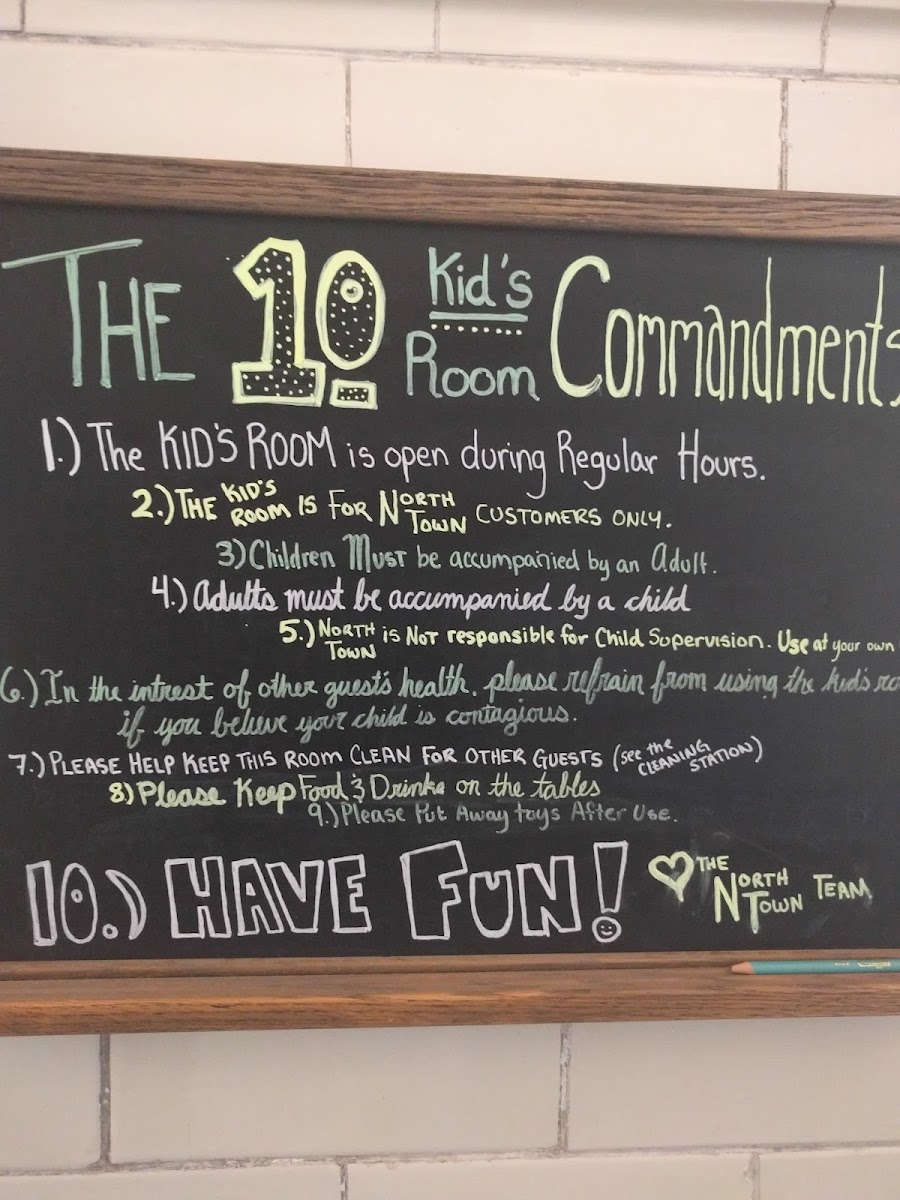 THE 10 Kid's Room Commandments
1.) The KID'S ROOM is open during Regular Hours.
2.) THE KID'S ROOM IS FOR NORTH TOWN CUSTOMERS ONLY.
3) Children Must be accumpanied by an Adult.
4.) Adults must be accumpanied by a child
5.) NORTH TOWN is NOT responsible for Child Supervision. Use at your own
6.) In the intrest of other guest's health, please refrain from using the kid's ro
if you believe your child is contagious.
7.) PLEASE HELP KEEP THIS ROOM CLEAN FOR OTHER GUESTS (see the CLEANING STATION)
8) Please Keep Food & Drinks on the tables
9.) Please Put Away toys After Use.
10.) HAVE FUN! THE NORTH TOWN TEAM